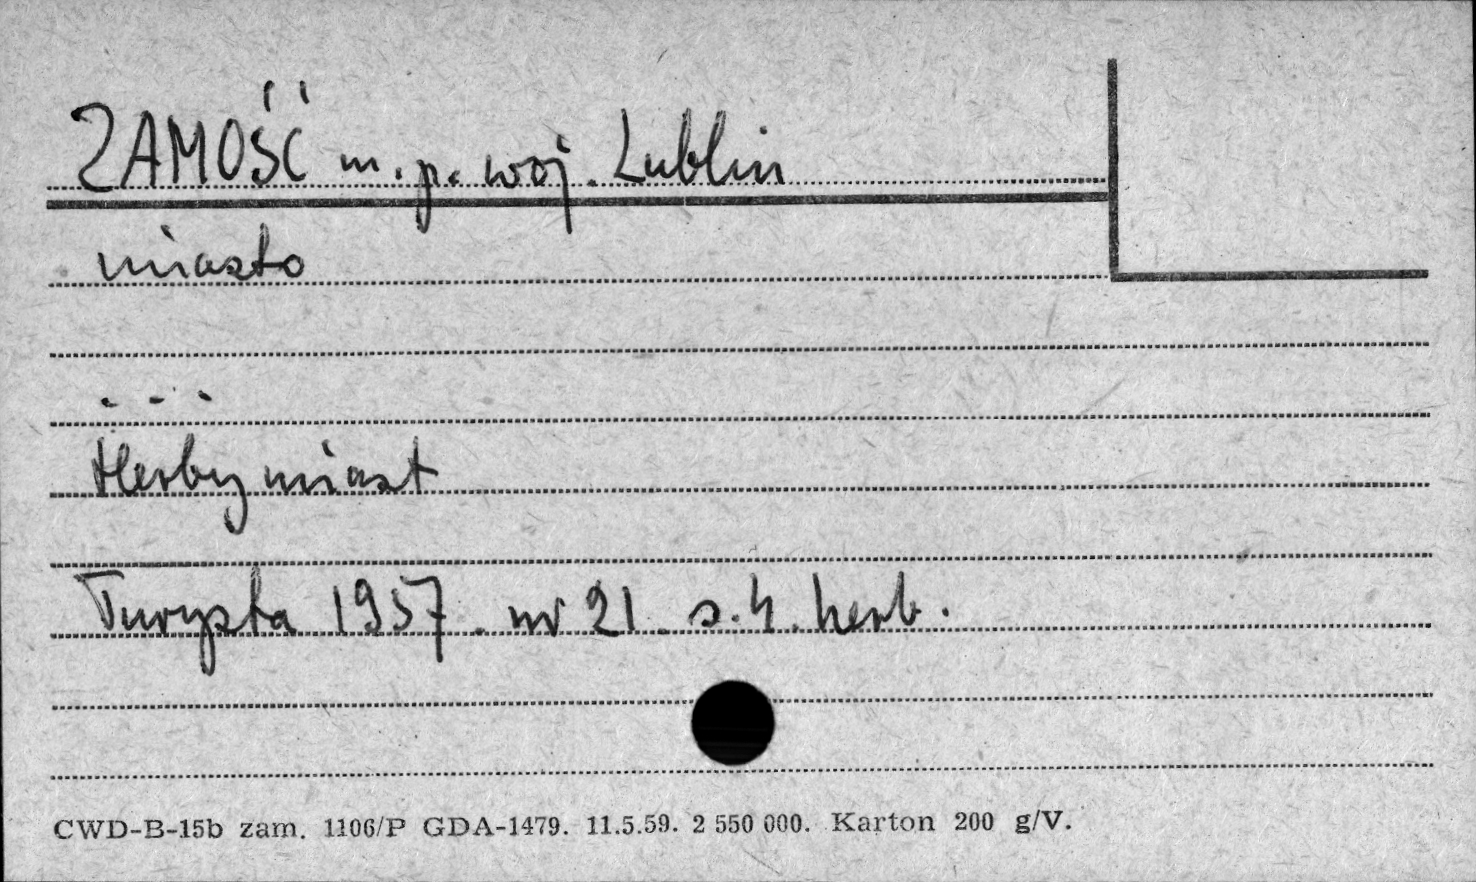 ZAMOŚĆ m. p. woj. Lublin
miasto
- - -
Herby miast
Turysta 1957. nr 21. s. 4. herb.
CWD-B-15b zam. 1106/P GDA-1479. 11.5.59. 2 550 000. Karton 200 g/V.